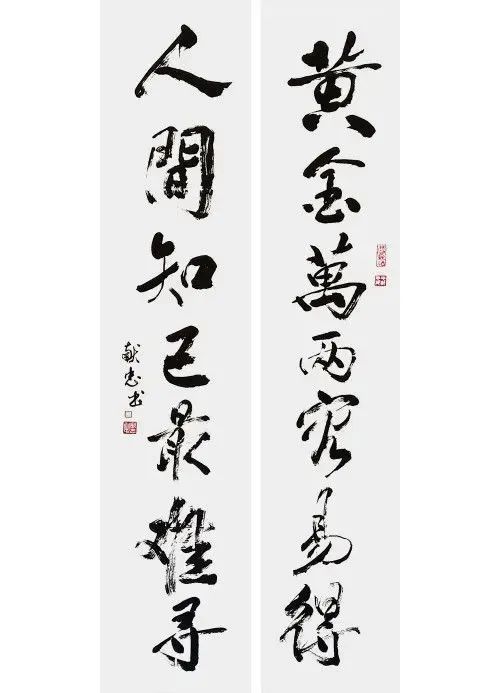 黄金萬两容易得
人間知己最难寻
献忠书